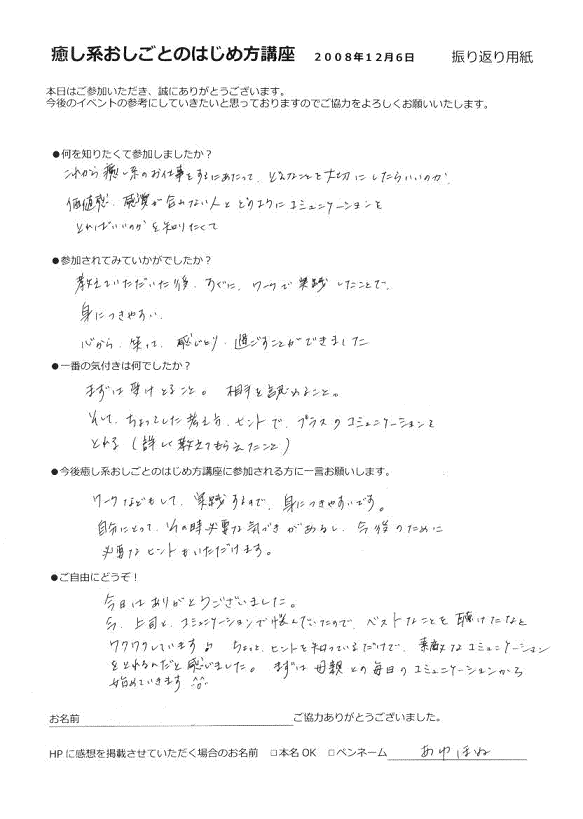 癒し系おしごとのはじめ方講座 2008年12月6日 振り返り用紙
本日はご参加いただき、誠にありがとうございます。
今後のイベントの参考にしていきたいと思っておりますのでご協力をよろしくお願いいたします。
●何を知りたくて参加しましたか？
これから癒し系のお仕事をするにあたって、どんなことを大切にしたらいいのか、
価値感、感覚が合わない人とどのようにコミュニケーションを
とればいいのかを知りたくて
●参加されてみていかがでしたか？
教えていただいた後、すぐに、ワークで実践したことで、
身につきやすい。
心から、笑って、感じとり、過ごすことができました
●一番の気付きは何でしたか？
まずは受けとること。相手を認めること。
そして、ちょっとした考え方、ヒントで、プラスのコミュニケーションを
とれる（詳しく教えてもらえたこと）
●今後癒し系おしごとのはじめ方講座に参加される方に一言お願いします。
ワークなどもして、実践するので、身につきやすいです。
自分にとって、その時必要な気づきがあるし、今後のために
必要なヒントもいただけます。
●ご自由にどうぞ！
今日はありがとうございました。
今、上司と、コミュニケーションで悩んでいたので、ベストなことを聴けたなと
ワクワクしています♪ ちょっと、ヒントを知っているだけで、素敵なコミュニケーション
をとれるのだと感じました。まずは母親との毎日のコミュニケーションから
始めていきます^^
お名前 ご協力ありがとうございました。
HPに感想を掲載させていただく場合のお名前 □本名OK □ペンネーム あゆほね